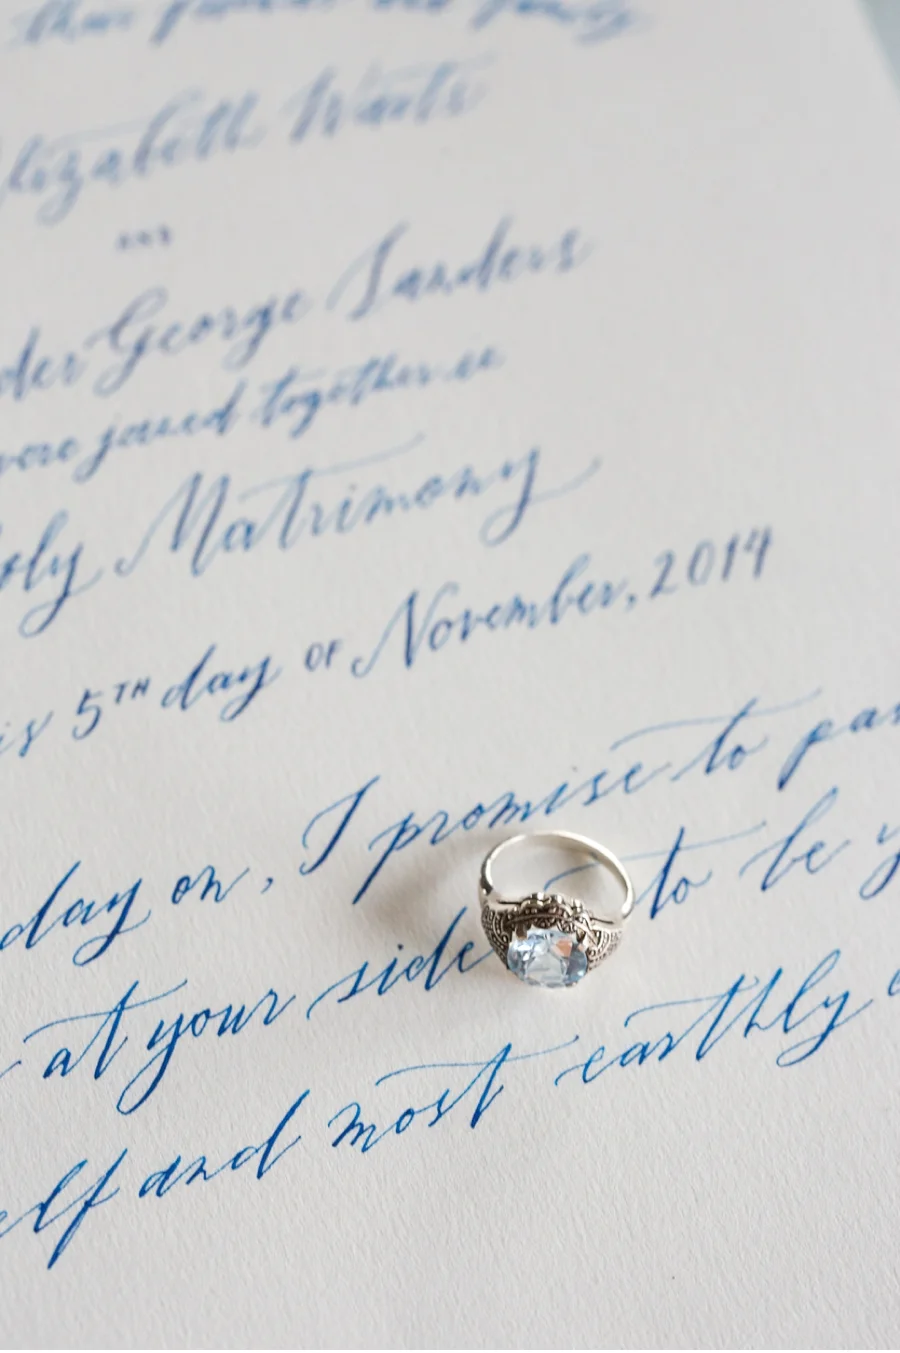 Elizabeth Watts
AND
der George Sanders
were joined together in
Holy Matrimony
is 5TH day OF November, 2014
day on, I promise to
at your side to be
elf and most earthly